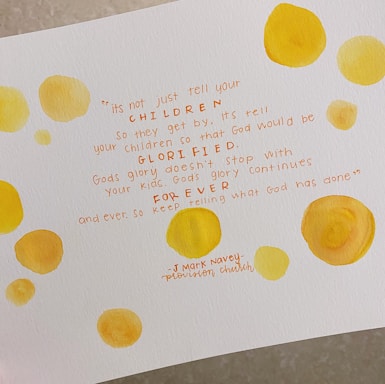 "its not just tell your
CHILDREN
so they get by. Its tell
your children so that God would be
GLORIFIED.
Gods glory doesn't stop with
your kids. Gods glory continues
FOREVER
and ever. so keep telling what God has done"
-J Mark Navey-
provision church